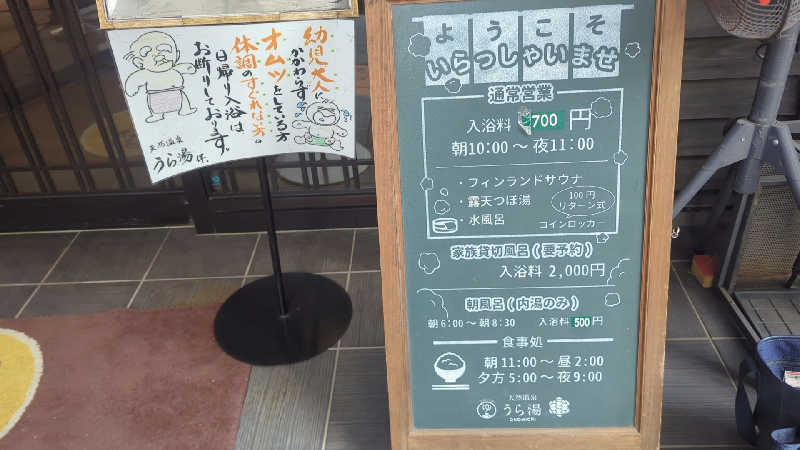 幼児大人に
かかわらず
オムツをしている方
体調のすぐれない方の
日帰り入浴は
お断りしております。
天然温泉
うら湯
ようこそ
いらっしゃいませ
通常営業
入浴料 700円
朝10:00～夜11:00
・フィンランドサウナ
・露天つぼ湯
・水風呂
100円
リターン式
コインロッカー
家族貸切風呂(要予約)
入浴料 2,000円
朝風呂(内湯のみ)
朝6:00～朝8:30 入浴料 500円
食事処
朝11:00～昼2:00
夕方5:00～夜9:00
天然温泉
うら湯